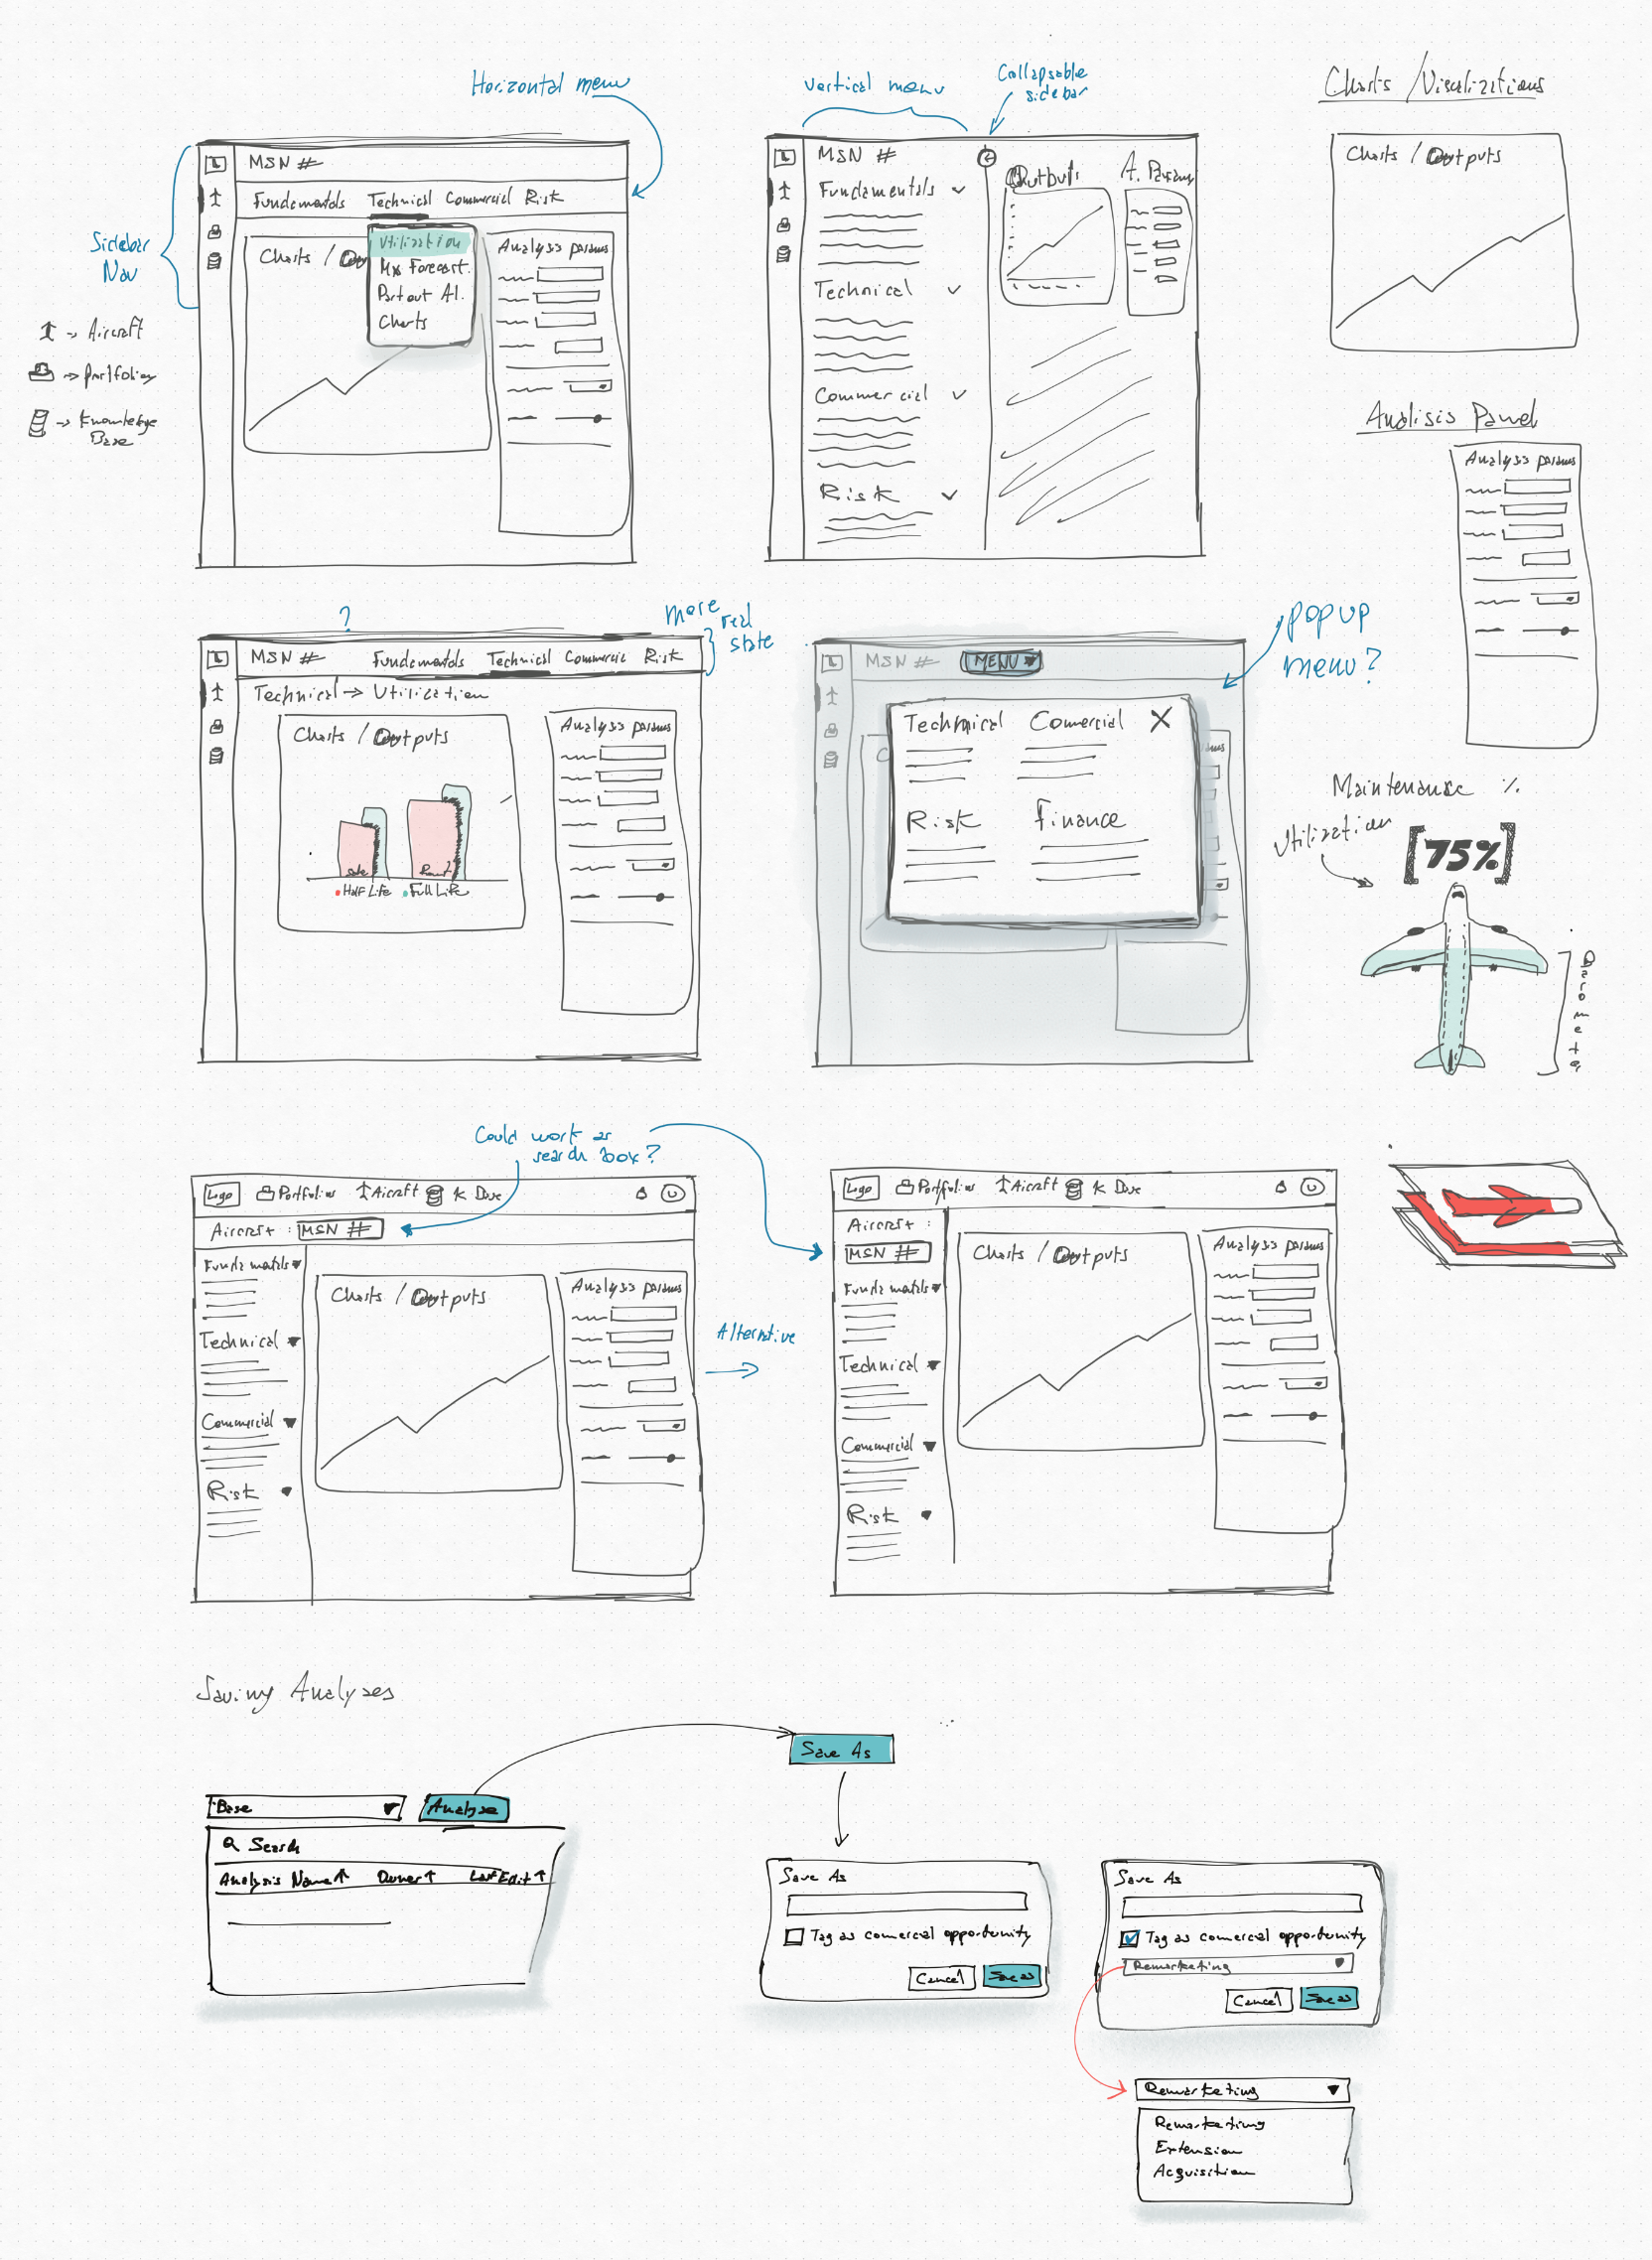 Horizontal menu
MSN #
Fundamentals Technical Commercial Risk
Utilization
Mx Forecast.
Partout Al.
Charts
Charts / Ou
Analysis params
Sidebar
Nav
→ Aircraft
→ portfolios
→ Knowledge
Base
vertical menu
Collapsable
sidebar
MSN #
Fundamentals
Technical
Commercial
Risk
Outputs
A. Params
Charts / Visualizations
Charts / Outputs
Analisis Panel
Analysis params
?
more real
state
MSN #
Fundamentals Technical Commercial Risk
Technical → Utilization
Charts / Outputs
Half Life Full Life
Analysis params
popup
menu?
MSN # MENU
Technical Comercial X
Risk Finance
Maintenance %
Utilization
[75%]
Barometer
Could work as
search box?
Logo Portfolios Aircraft K Base U
Aircraft : MSN #
Fundamatals
Technical
Commercial
Risk
Charts / Outputs
Analysis params
Alternative
Logo Portfolios Aircraft K Base U
Aircraft :
MSN #
Fundamatals
Technical
Commercial
Risk
Charts / Outputs
Analysis params
Saving Analyses
Save As
Base
Analyze
Search
Analysis Name↑ Owner↑ Last Edit↑
Save As
Tag as comercial opportunity
Cancel Save as
Save As
Tag as comercial opportunity
Remarketing
Cancel Save as
Remarketing
Remarketing
Extension
Acquisition